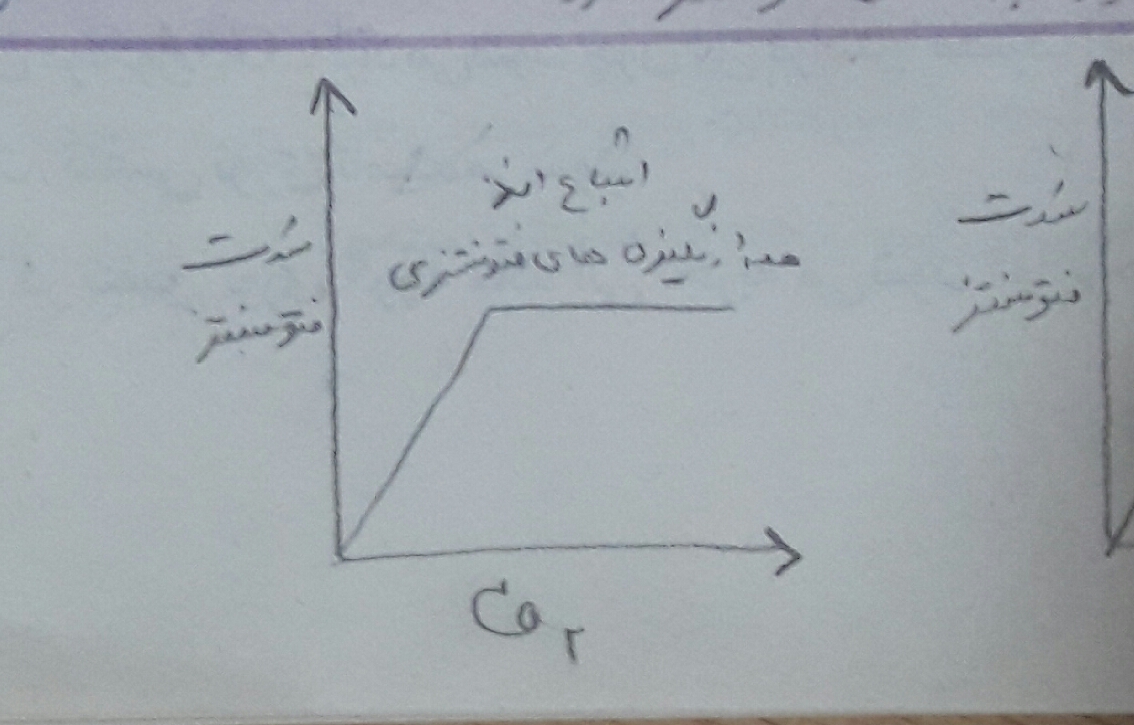 اشباع اند
رنگیزه های فتوسنتزی
شدت
فتوسنتز
Co₂
شدت
فتوسنتز